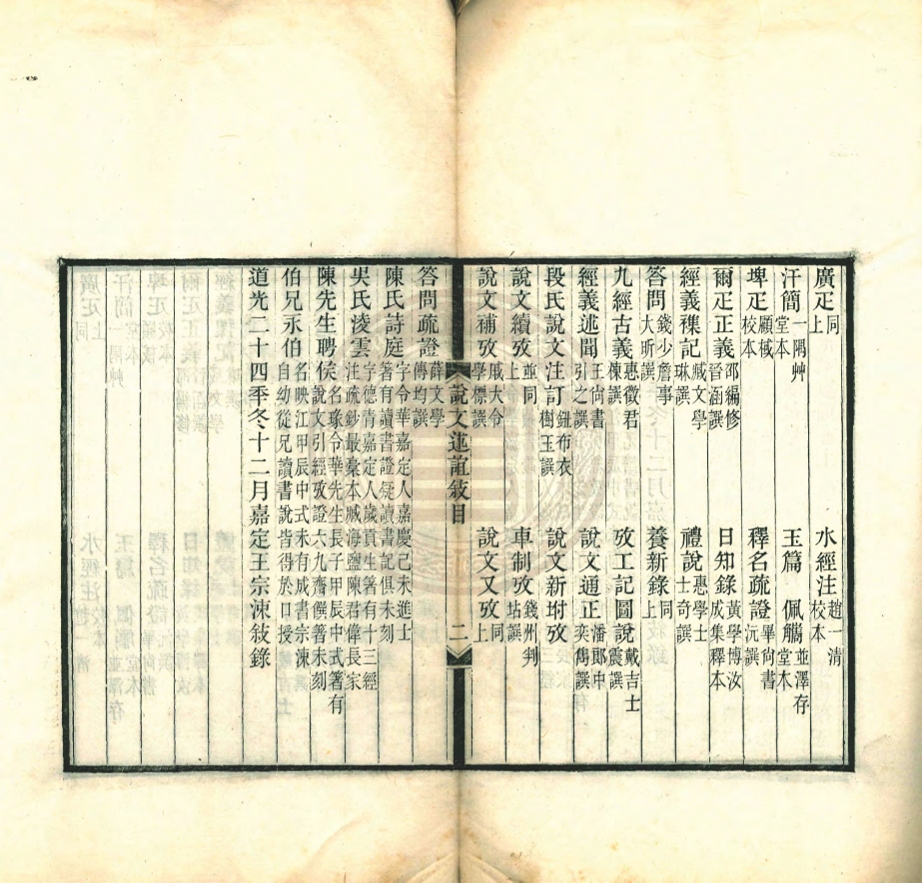 廣疋同上　水經注趙一清校本
汗簡一隅艸堂本　玉篇　佩觿並澤存堂本
埤疋顧棫校本　釋名疏證畢尙書沅譔
爾疋正義邵編修晉涵譔　日知錄黃學博汝成集釋本
經義襍記臧文學琳譔　禮說惠學士士奇譔
答問錢少詹事大昕譔　養新錄同上
九經古義惠徵君棟譔　攷工記圖說戴吉士震譔
經義述聞王尙書引之譔　說文通正潘郞中奕雋譔
段氏說文注訂鈕布衣樹玉譔　說文新坿攷
說文續攷並同上　車制攷錢州判坫譔
說文補攷戚大令學標譔　說文又攷同上
說文述誼敍目　二
答問疏證薛文學傳均譔
陳氏詩庭字令華嘉定人嘉慶己未進士著有讀書證疑讀書記俱未刻
吳氏淩雲字德青嘉定人歲貢生著有十三經注疏鈔最稾本臧海鹽陳君偉長家
陳先生聘侯名瑑令華先生長子甲辰中式著有說文引經攷證六九齋饌著未刻
伯兄永伯名映江甲辰中式未有成書宗涑自幼從兄讀書說皆得於口授
道光二十四季冬十二月嘉定王宗涑敍錄